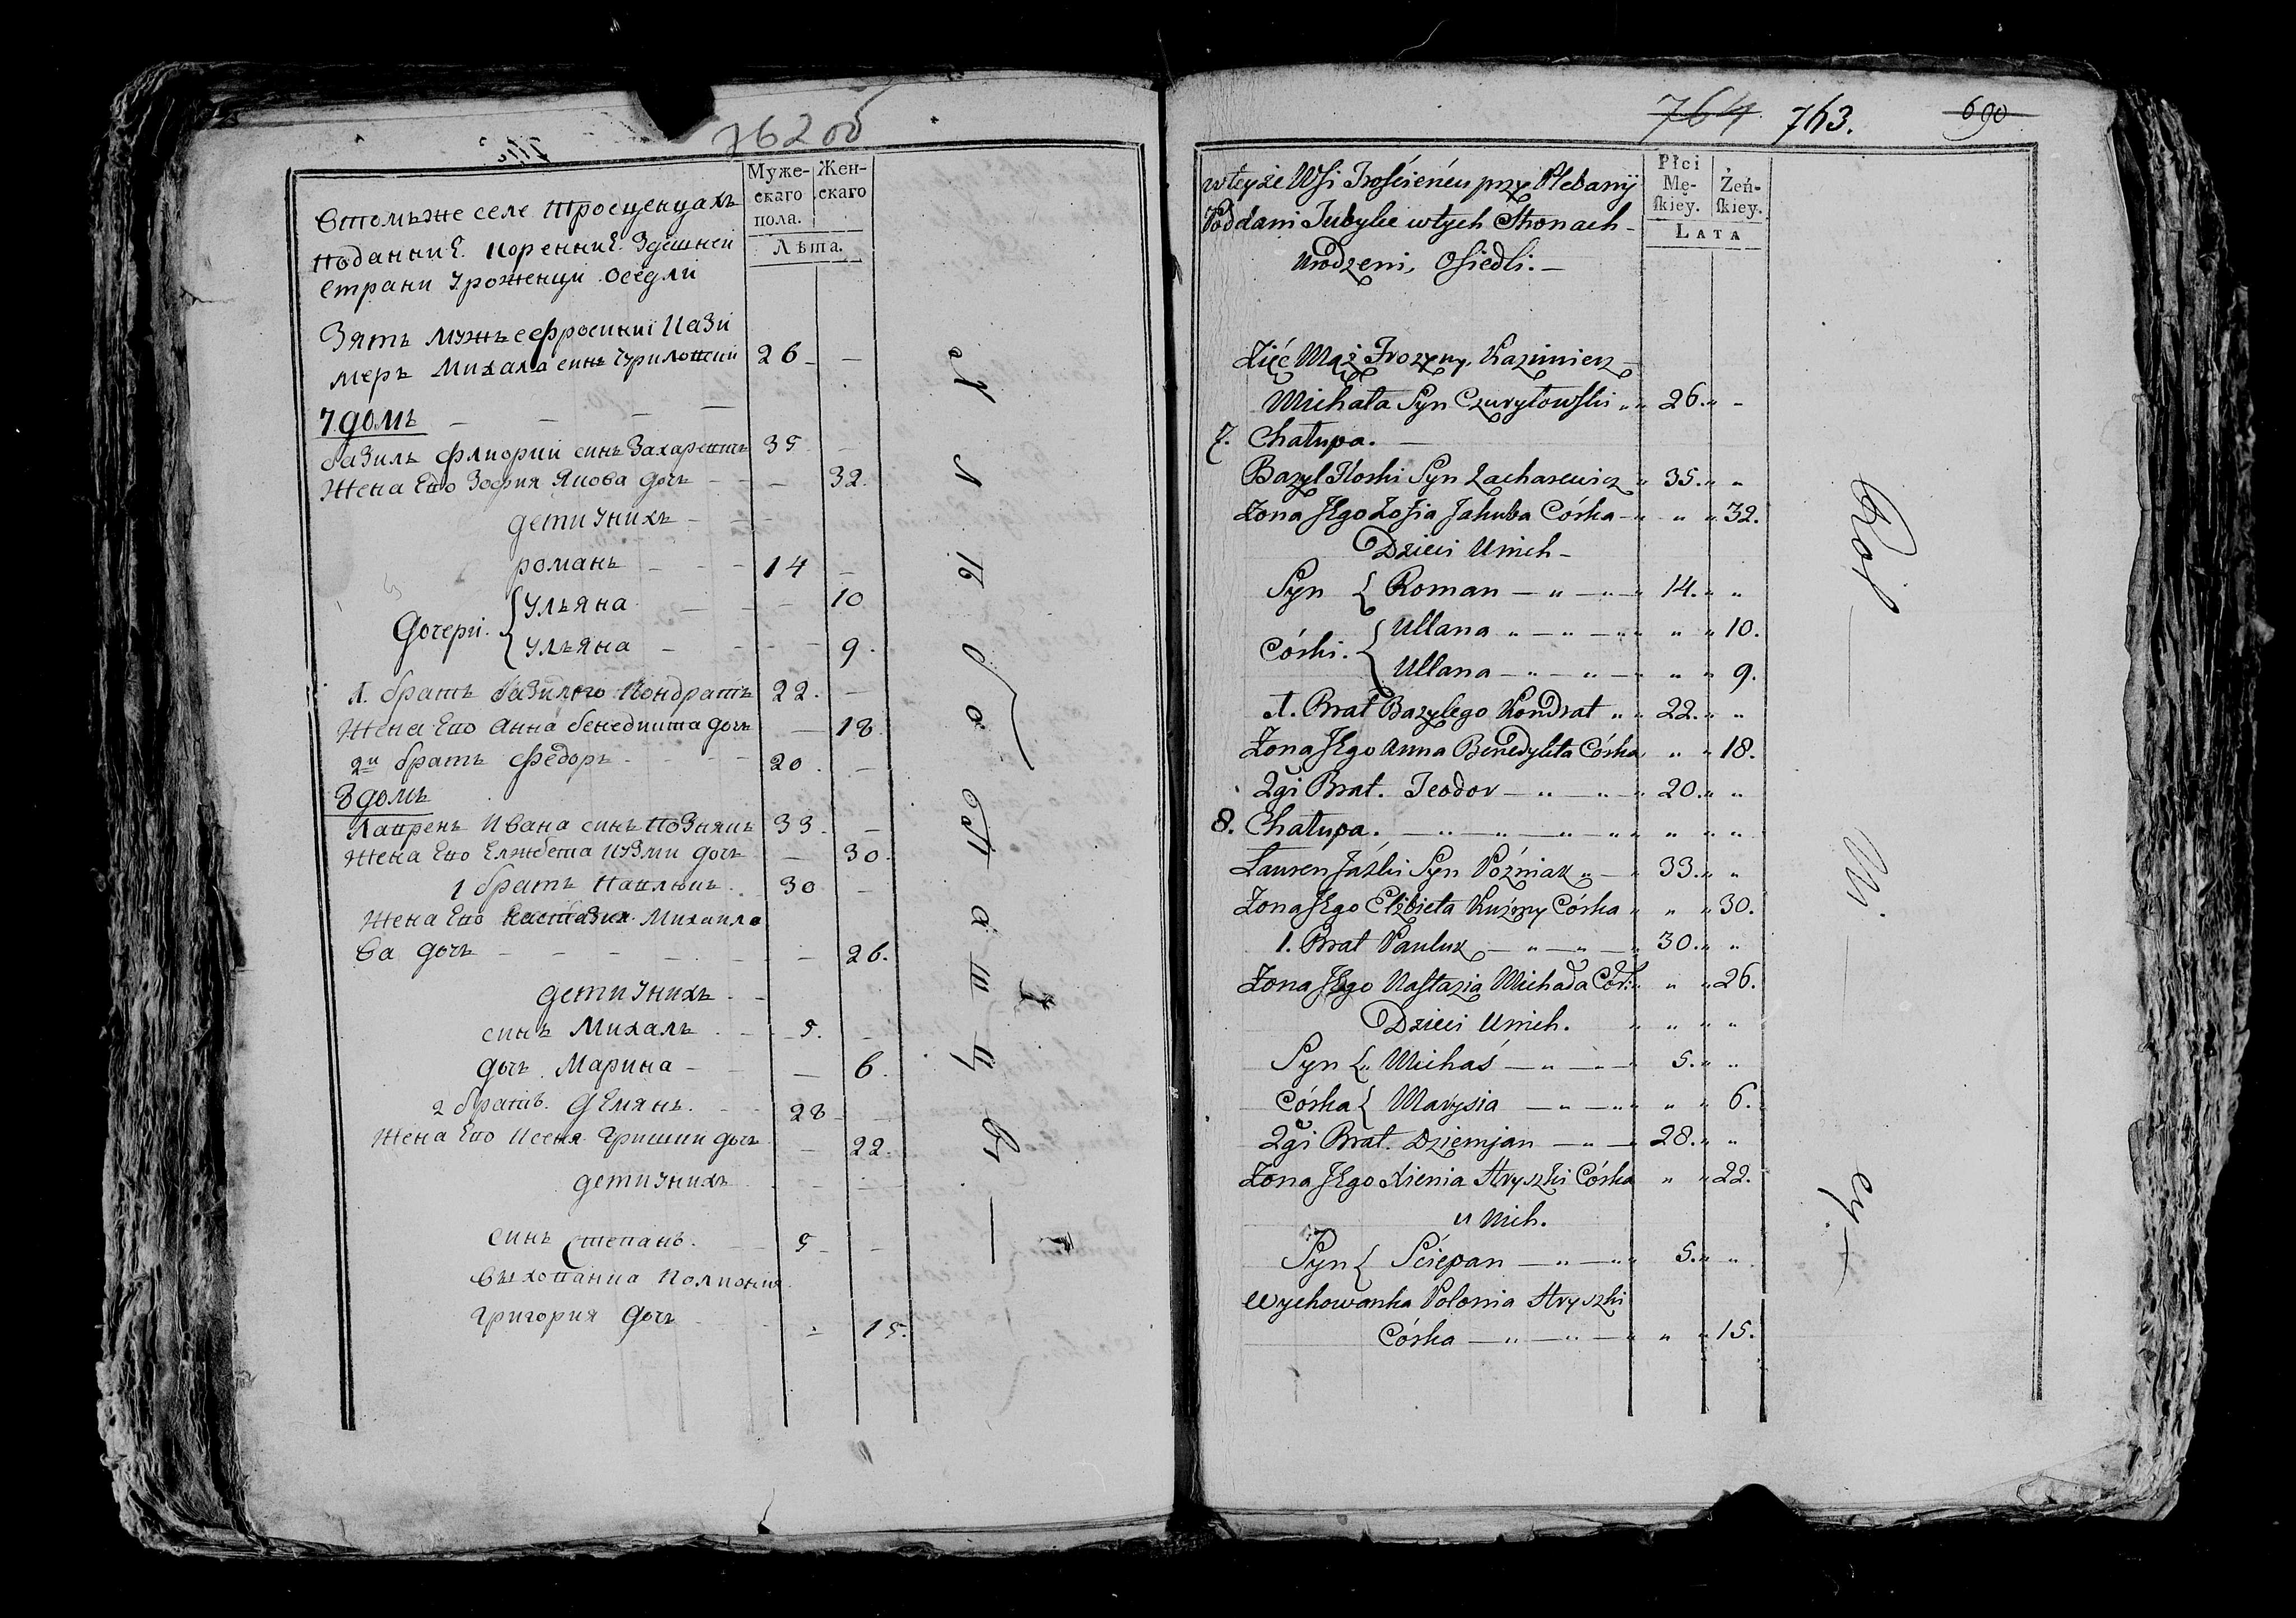 76200
Муже-
скаго
пола.
Жен-
скаго
Лѣта.
Втомъже селе Тросценцахъ
поданниЕ. КоренниЕ. Здешней
Страни Уроженци Оседли
Зять Мужъ Ефросинии Кази
меръ Михала синъ Чуриловский 26 - -
7 домъ - - - -
базилъ Флиорки синъ Захаревичъ 35 -
Жена Его Зофия Якова дочъ - - - 32.
дети Унихъ - -
романъ - - - 14 -
Дочери. { Ульяна - - - - 10
Ульяна - - - - 9.
1. братъ базилего Кондратъ 22. -
Жена Его Анна бенедикта дочъ - 18.
2й братъ Федоръ - - - 20. -
8 домъ
Лавренъ Ивана синъ Позняпъ 33. -
Жена Его Елжбета Кузми дочъ - 30.
1 братъ Павлюкъ - 30 -
Жена Его Настазия Михайло
ва дочъ - - - - - - - 26.
дети Унихъ - -
синъ Михалъ - - 5. -
дочъ Марина - - - 6.
2 братъ. дЕмянъ. - - 28 - -
Жена Его Ксеня Гришки дочъ - 22.
дети Унихъ - - -
синъ Степанъ. - - 5 - -
Выхованка Полиония
Григория дочъ - - 15.
764 763. 690
Płci
Mę-
skiey.
Żeń-
skiey.
LATA
wteyże Wsi Trościeńcu przy Plebanij
Poddani Tubylce wtych Stronach -
Urodzeni, Osiedli. -
Zięć Mąż Frozyny, Kazimierz -
Michała Syn Czuryłowski „ „ 26. „ -
7. Chałupa. -
Bazyl Floshi Syn Zacharewicz „ 35. „ „
Zona JEgo Zofia Jakuba Córka - „ „ „ 32.
Dzieci Unich -
Syn { Roman - „ - „ - „ 14. „ „
Córki. { Ullana „ - „ - „ „ „ „ 10.
Ullana - „ - „ - „ „ „ 9.
1. Brat Bazylego Kondrat „ „ 22. „ „
Zona JEgo Anna Benedykta Córka „ „ 18.
2gi Brat. Teodor - „ - „ - „ 20. „ „
8. Chałupa. - „ - „ - „ - „ „ „ „ „
Lauren Jaśki Syn Poźniak „ - „ 33. „ „
Zona JEgo Elżbieta Kuźmy Córka „ „ „ 30.
1. Brat Pauluk - „ - „ - „ 30. „ „
Zona JEgo Nastazia Michała Cór: „ „ „ 26.
Dzieci Unich. „ „ „ „
Syn { „ Michaś - „ - „ - „ 5. „ „
Córka { Marysia - „ - „ „ „ „ 6.
2gi Brat. Dziemjan - „ - „ 28. „ „
Zona JEgo Xienia Hryszki Córka „ „ 22.
u Nich.
Syn { Sciepan - „ - „ „ 5. „ „
Wychowanka Polonia Hryszki
Córka - „ - „ - „ „ „ 15.
Rol - ni - cy. -